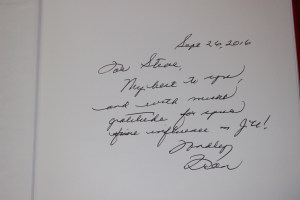 Sept 26, 2016
For Steve,
My best to you,
and with much
gratitude for your
fine influence in
Fondly,
Fran